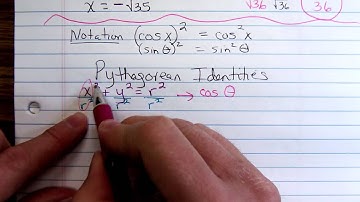 x = -√35 √36 √36 36
Notation (cos x)² = cos² x
(sin θ)² = sin² θ
Pythagorean Identities
x² + y² = r² → cos θ
r² r² r²